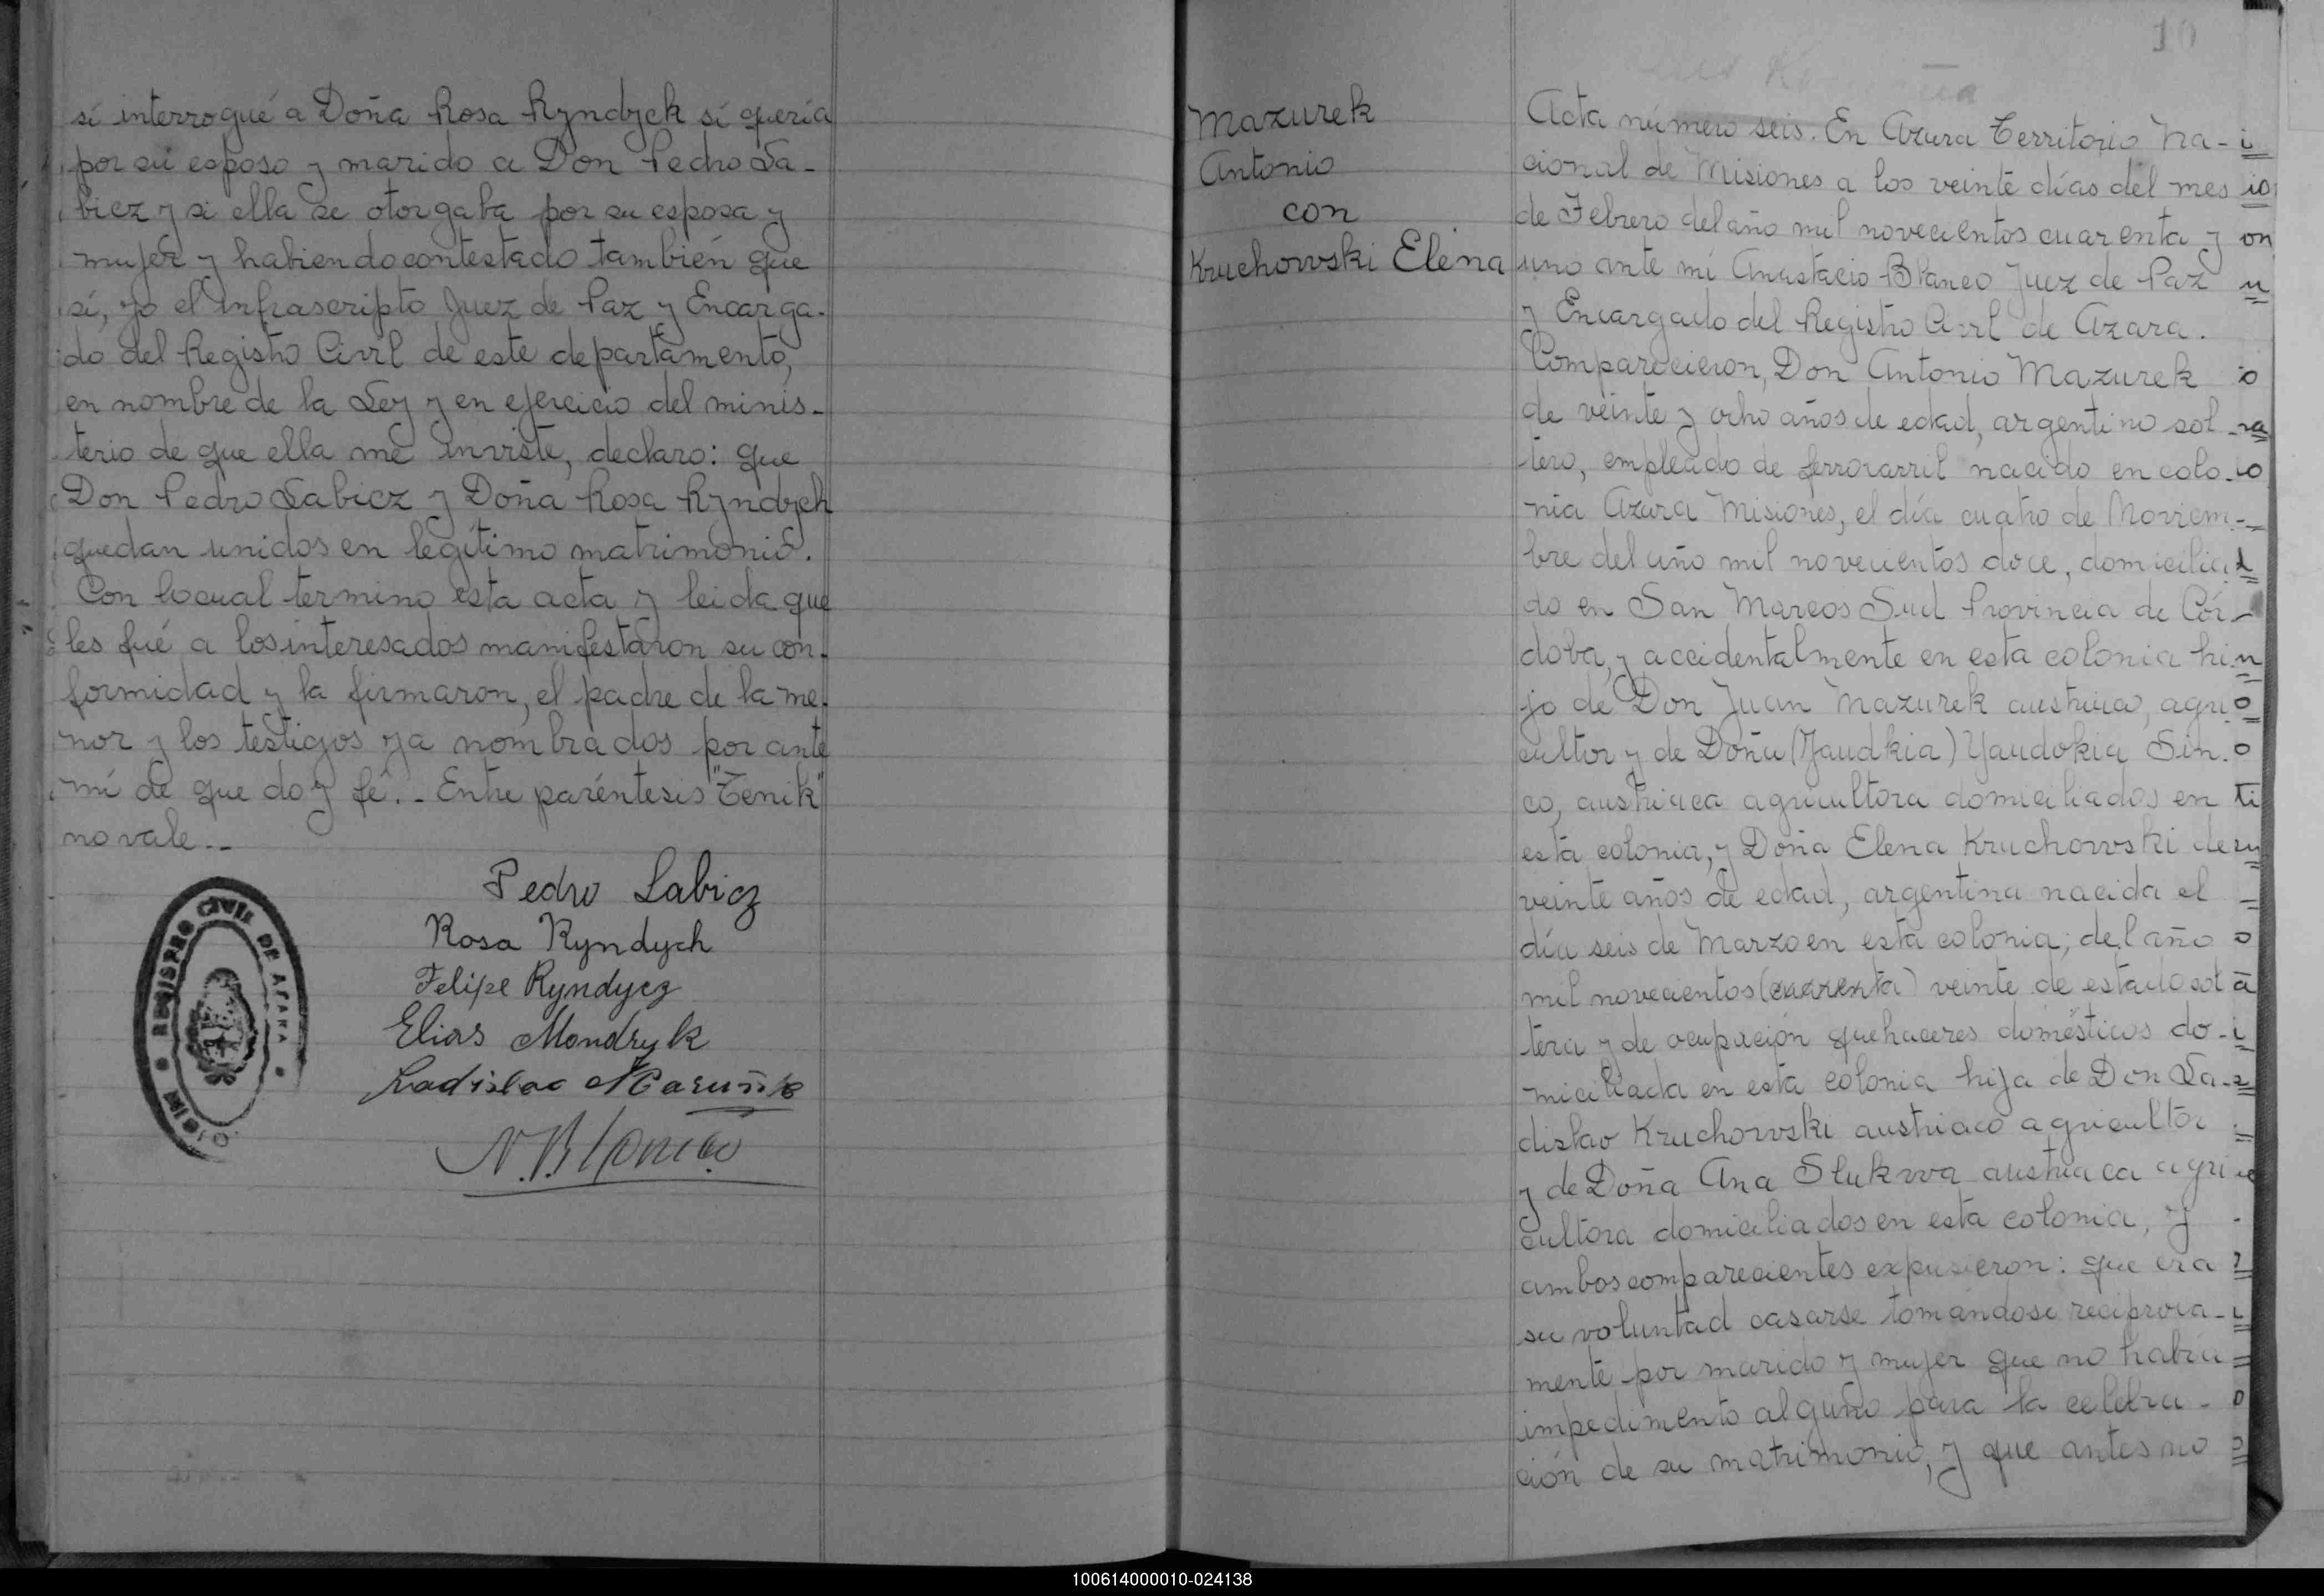 sí interrogué a Doña Rosa Ryndyck si quería
por su esposo y marido a Don Pedro La-
bicz y si ella se otorgaba por su esposa y
mujer y habiendo contestado también que
sí, yo el infrascripto Juez de Paz y Encarga-
do del Registro Civil de este departamento,
en nombre de la Ley y en ejercicio del minis-
terio de que ella me inviste, declaro: que
Don Pedro Labicz y Doña Rosa Ryndych
quedan unidos en legítimo matrimonio.
Con lo cual termino esta acta y leida que
les fué a los interesados manifestaron su con-
formidad y la firmaron, el padre de la me-
nor y los testigos ya nombrados por ante
mí de que doy fé.- Entre paréntesis "Tenik"
no vale.-
Pedro Labicz
Rosa Ryndych
Felipe Ryndycz
Elias Mondryk
Ladislao
REGISTRO CIVIL DE AZARA
10
Mazurek
Antonio
con
Kruchowski Elena
Acta número seis. En Azara Territorio Na-
cional de Misiones a los veinte días del mes
de Febrero del año mil novecientos cuarenta y
uno ante mí Anastacio Blanco Juez de Paz
y Encargado del Registro Civil de Azara.
Comparecieron, Don Antonio Mazurek
de veinte y ocho años de edad, argentino sol-
tero, empleado de ferrocarril nacido en colo-
nia Azara Misiones, el día cuatro de Noviem-
bre del año mil novecientos doce, domicilia-
do en San Marcos Sud Provincia de Cór-
doba, y accidentalmente en esta colonia hi-
jo de Don Juan Mazurek austriaco, agri-
cultor y de Doña (Yaudkia) Yaudokia Sin-
co, austriaca agricultora domiciliados en
esta colonia, y Doña Elena Kruchowski de
veinte años de edad, argentina nacida el
día seis de Marzo en esta colonia; del año
mil novecientos (cuarenta) veinte de estado sol
tera y de ocupación quehaceres domésticos do-
miciliada en esta colonia hija de Don La-
dislao Kruchowski austriaco agricultor
y de Doña Ana Slukwa austriaca agri
cultora domiciliados en esta colonia, y
ambos comparecientes expusieron: que era
su voluntad casarse tomándose reciproca-
mente por marido y mujer que no había
impedimento alguno para la celebra-
ción de su matrimonio, y que antes no
100614000010-024138